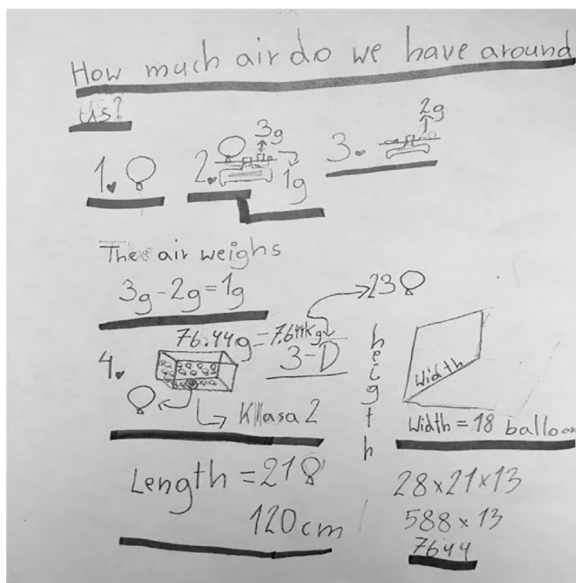 How much air do we have around
us?
1. 2. 3g 1g 3. 2g
The air weighs
3g-2g=1g
23
76.44g=7.644kg
4. 3-D
Klasa 2
heigth
Width
Width = 18 balloon
Length = 218
120cm
28x21x13
588x13
7644